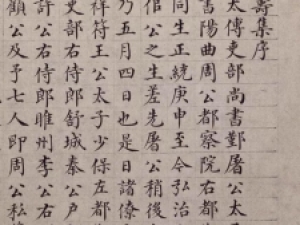 壽集序
太傅吏部尚書鄞屠公太子
書陽曲周公都察院右都
同生正統庚申至今弘治
倌公之生差先屠公稍後
乃五月四日也是日諸僚
祥符王公太子少保左都
吏部右侍郎舒城秦公户
許公右侍郎睢州李公右
顧公及予七人即周公私